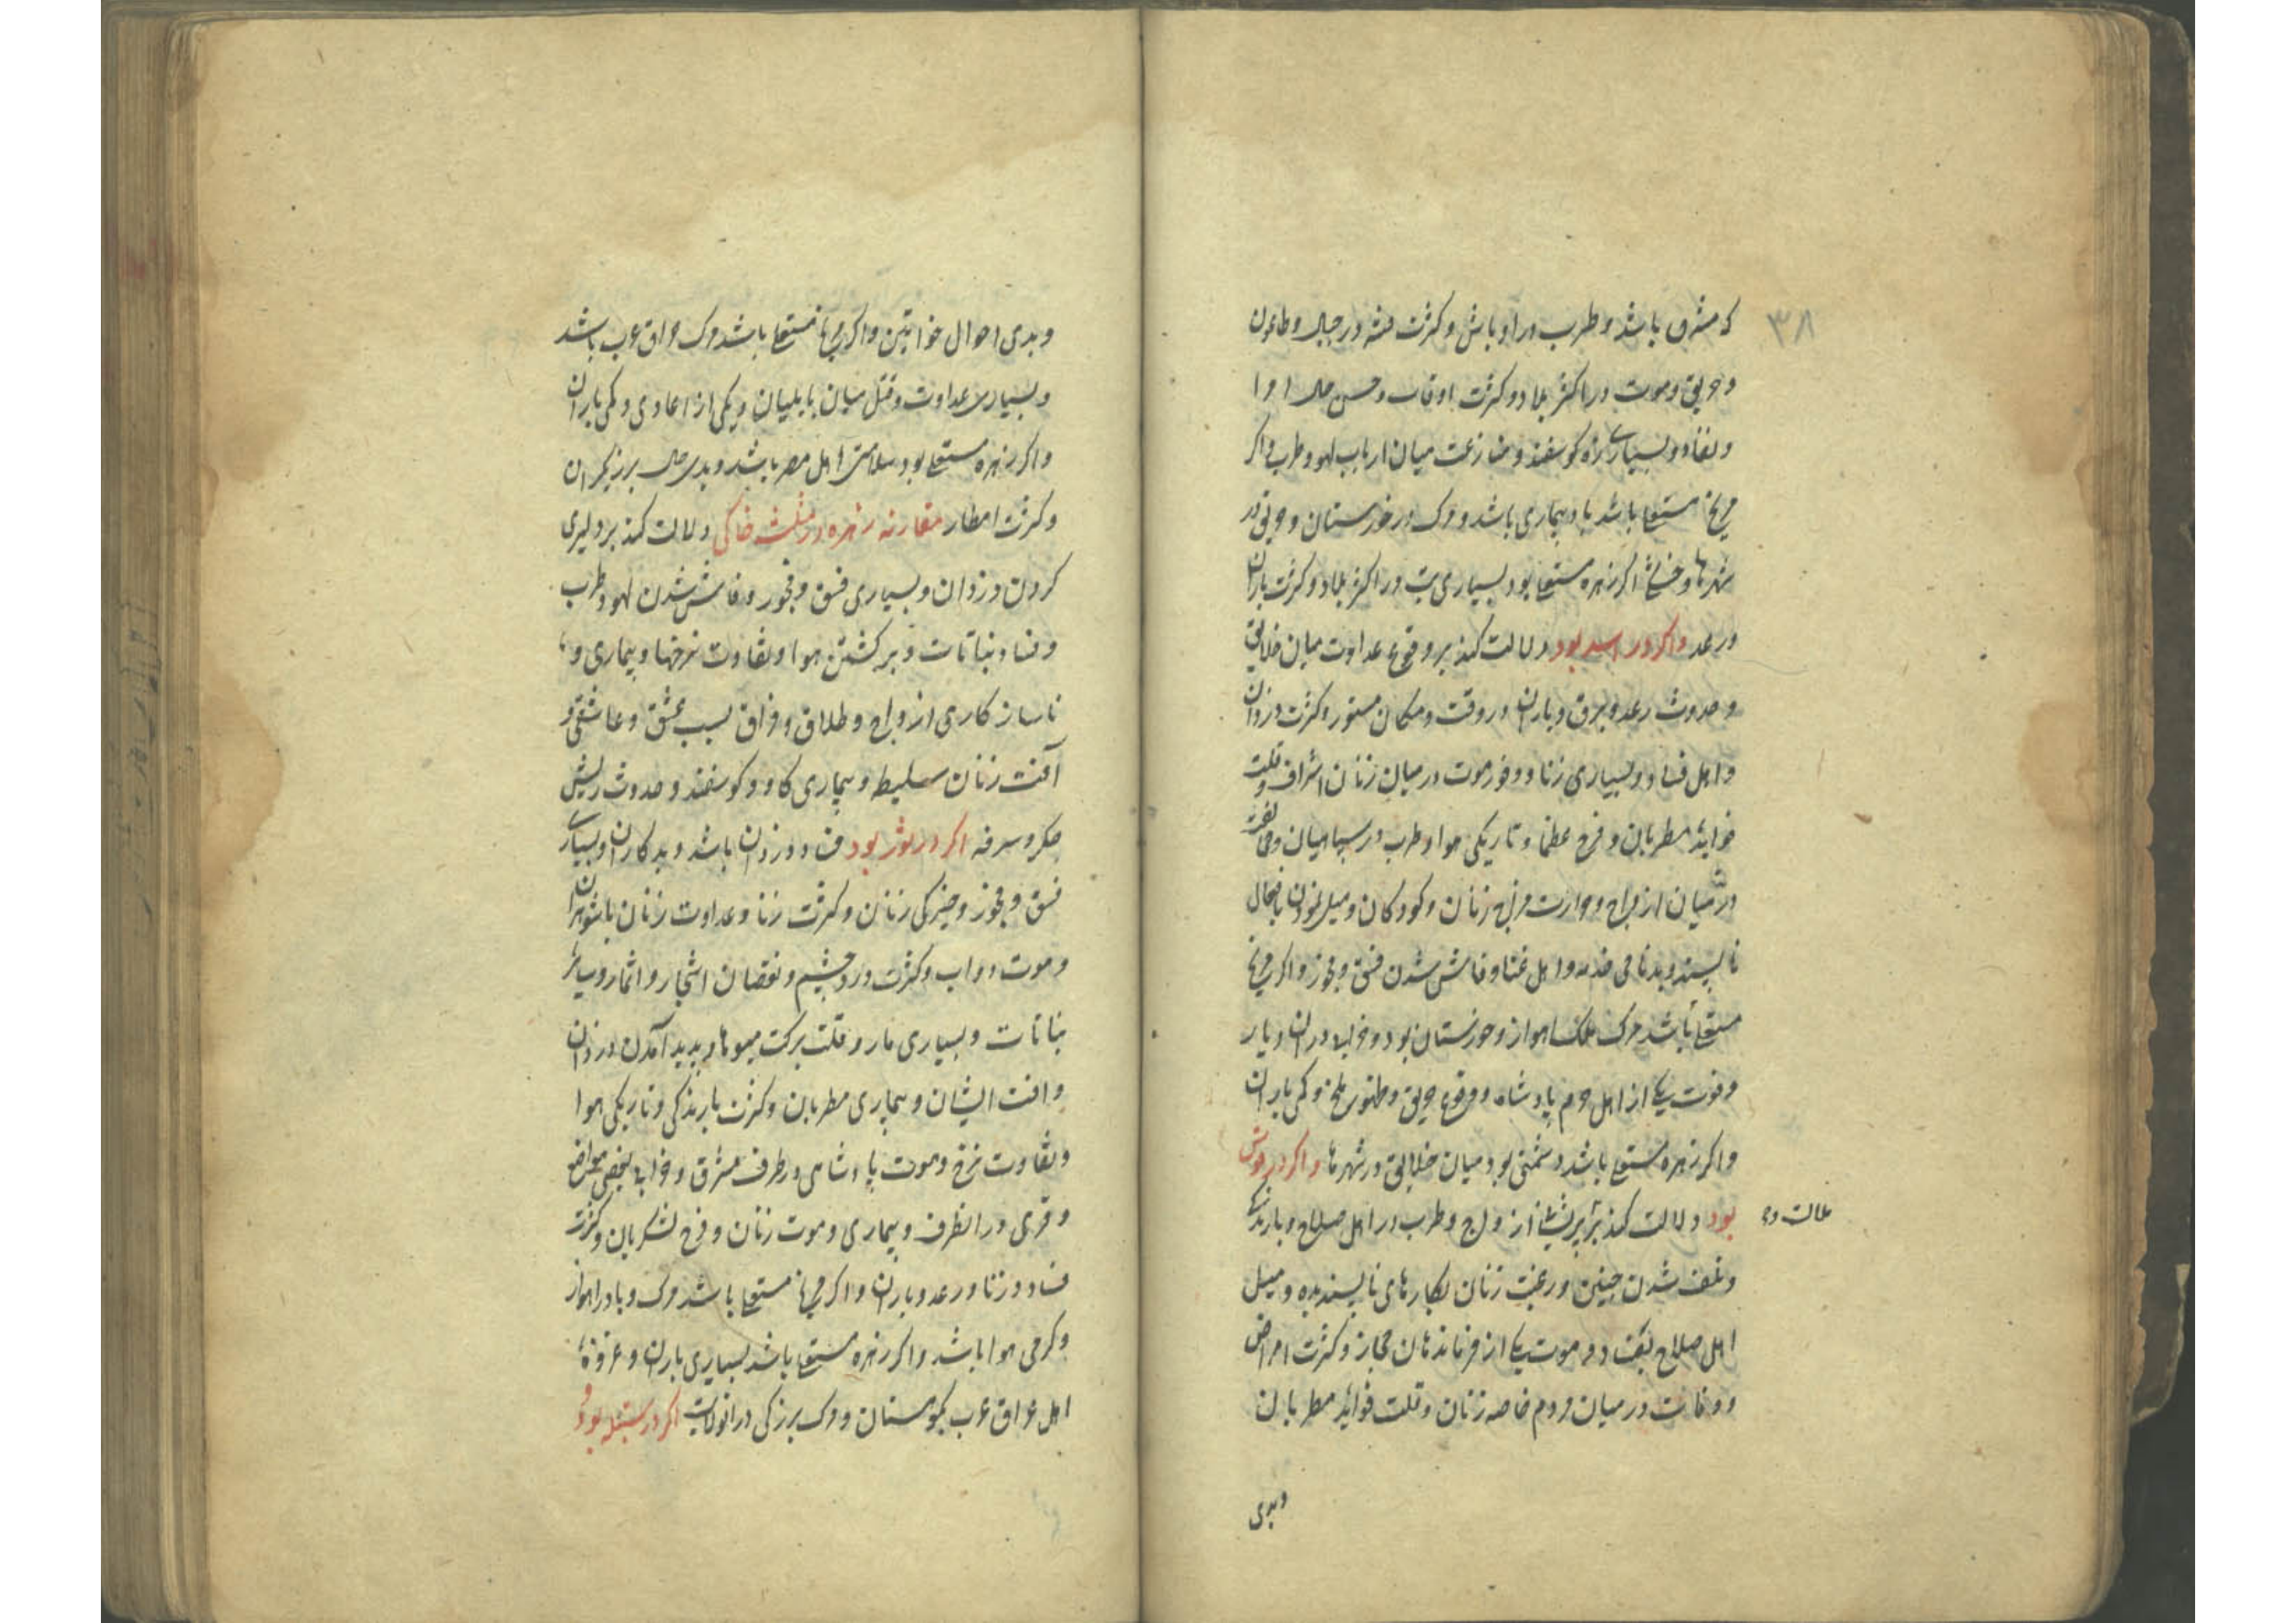 ۳۸
که مشرق باشد و طرب در اوباش و کثرت فتنه در جبال و طاعون
و حریق و موت در اکثر بلاد و کثرت
و بسیاری بره کوسفند و منازعت میان ارباب لهو و طرب و اکر
مریخ مستعلی باشد باد و بیماری باشد و مرک در خوزستان و حریق در
شهرها و اکر زهره مستعلی بود بسیاری تب در اکثر بلاد و کثرت باران
و رعد واکر در اسد بود دلالت کند بر وقوع عداوت میان خلایق
و حدوث رعد و برق و باران در وقت و مکان مستور و کثرت دزدان
و اهل فساد و بسیاری زنا و وفور موت در میان زنان اشراف و قلت
فواید مطربان و فرح عظما و تاریکی هوا و طرب در سپاهیان و نفرت
در میان ازواج و حرارت مزاج زنان و کودکان و میل نمودن بافعال
ناپسند و بدنامی و اهل غنا و فاش شدن فسق و فجور و اکر مریخ
مستعلی باشد مرک ملک اهواز و خوزستان بود و در ان دیار
و فوت یکی از اهل حرم پادشاه و وقوع حریق و ظهور ملخ و کمی باران
و اکر زهره مستعلی باشد دشمنی بود میان خلایق در شهرها واکر در قوس
بود دلالت کند بر پریشانی ازواج و طرب در اهل صلاح و بارندکی
و تلف شدن جنین و رغبت زنان بکارهای ناپسندیده و میل
اهل صلاح بفساد و موت یکی از فرماندهان حجاز و کثرت امراض
و وفات در میان مردم خاصه زنان و قلت فواید مطربان
وبدی
و بدی احوال خواتین و اکر مریخ مستعلی باشد مرک عراق عرب باشد
و بسیاری عداوت و قتل میان بابلیان و یکی از اعادی و کمی باران
و اکر زهره مستعلی بود سلامتی اهل مصر باشد و بدی حال برزیکران
و کثرت امطار مقارنه زهره در مثلثه خاکی دلالت کند بر دلیری
کردن دزدان و بسیاری فسق و فجور و فاش شدن لهو و طرب
و فساد نباتات و برکشتن هوا و تفاوت نرخها و بیماری و
ناسازکاری ازواج و طلاق و فراق بسبب عشق و عاشقی و
آفت زنان سلیطه و بیماری کاو و کوسفند و حدوث ریش
جکر و سرفه اکر در ثور بود فساد دزدان باشد و بدکاران و بسیاری
فسق و فجور و خیرکی زنان و کثرت زنا و عداوت زنان با شوهران
و موت دواب و کثرت درد چشم و نقصان اشجار و اثمار و سایر
نباتات و بسیاری مار و قلت برکت میوها و پدید آمدن دزدان
و افت ایشان و بیماری مطربان و کثرت بارندکی و تاریکی هوا
و تفاوت نرخ و موت پادشاهی در طرف مشرق و خرابی بعضی مواضع
و قری در انطرف و بیماری و موت زنان و فرح لشکریان و کثرت
فساد و زنا و رعد و باران و اکر مریخ مستعلی باشد مرک و با در اهواز
و کرمی هوا باشد و اکر زهره مستعلی باشد بسیاری باران و
اهل عراق عرب بکوهستان و مرک بزرکی در انولایت اکر در سنبله بود